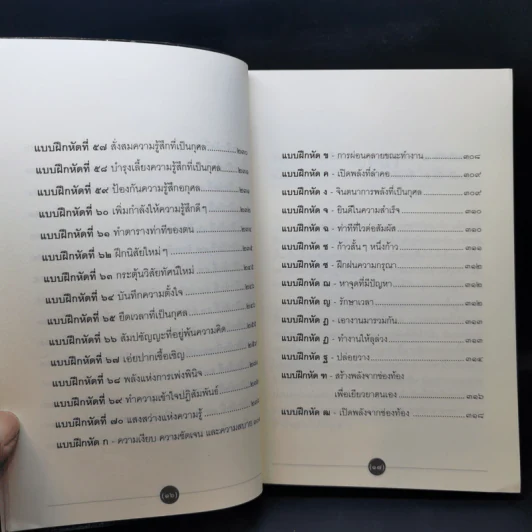 แบบฝึกหัดที่ ๕๗ สั่งสมความรู้สึกที่เป็นกุศล
แบบฝึกหัดที่ ๕๘ บำรุงเลี้ยงความรู้สึกที่เป็นกุศล
แบบฝึกหัดที่ ๕๙ ป้องกันความรู้สึกอกุศล
แบบฝึกหัดที่ ๖๐ เพิ่มกำลังให้ความรู้สึกดีๆ
แบบฝึกหัดที่ ๖๑ ทำตารางท่าทีของตน
แบบฝึกหัดที่ ๖๒ ฝึกนิสัยใหม่ๆ
แบบฝึกหัดที่ ๖๓ กระตุ้นวิสัยทัศน์ใหม่
แบบฝึกหัดที่ ๖๔ บันทึกความตั้งใจ
แบบฝึกหัดที่ ๖๕ ยึดเวลาที่เป็นกุศล
แบบฝึกหัดที่ ๖๖ สัมปชัญญะที่อยู่พ้นความคิด
แบบฝึกหัดที่ ๖๗ เอ่ยปากเชื้อเชิญ
แบบฝึกหัดที่ ๖๘ พลังแห่งการเพ่งพินิจ
แบบฝึกหัดที่ ๖๙ ทำความเข้าใจปฏิสัมพันธ์
แบบฝึกหัดที่ ๗๐ แสงสว่างแห่งความรู้
แบบฝึกหัด ก - ความเงียบ ความชัดเจน และความสบาย
(๑๖)
แบบฝึกหัด ข - การผ่อนคลายขณะทำงาน ๓๐๘
แบบฝึกหัด ค - เปิดพลังที่ลำคอ ๓๐๙
แบบฝึกหัด ง - จินตนาการพลังที่เป็นกุศล ๓๐๙
แบบฝึกหัด จ - ยินดีในความสำเร็จ ๓๑๐
แบบฝึกหัด ฉ - ท่าทีที่ไวต่อสัมผัส ๓๑๐
แบบฝึกหัด ช - ก้าวสั้นๆ หนึ่งก้าว ๓๑๑
แบบฝึกหัด ซ - ฝึกฝนความกรุณา ๓๑๒
แบบฝึกหัด ฌ - หาจุดที่มีปัญหา ๓๑๒
แบบฝึกหัด ญ - รักษาเวลา ๓๑๒
แบบฝึกหัด ฎ - เอางานมารวมกัน ๓๑๓
แบบฝึกหัด ฏ - ทำงานให้ลุล่วง ๓๑๓
แบบฝึกหัด ฐ - ปล่อยวาง ๓๑๔
แบบฝึกหัด ฑ - สร้างพลังจากช่องท้อง
เพื่อเยียวยาตนเอง ๓๑๖
แบบฝึกหัด ฒ - เปิดพลังจากช่องท้อง ๓๑๘
(๑๗)